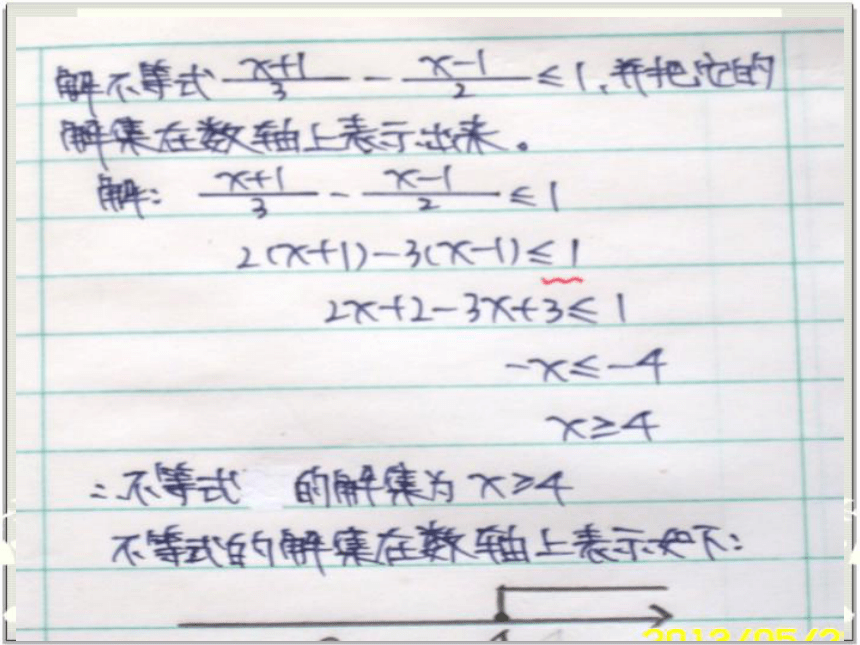 解不等式 (x+1)/3 - (x-1)/2 ≤ 1, 并把它的
解集在数轴上表示出来。
解: (x+1)/3 - (x-1)/2 ≤ 1
2(x+1)-3(x-1)≤1
2x+2-3x+3≤1
-x≤-4
x≥4
∴不等式 的解集为 x≥4
不等式的解集在数轴上表示如下: